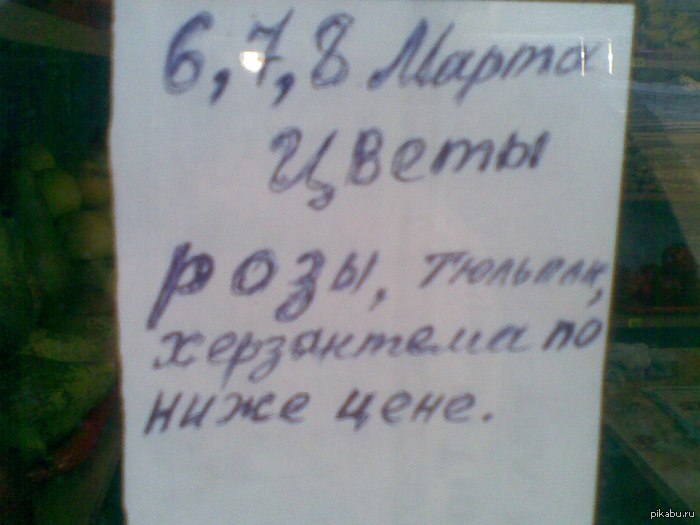 6, 7, 8 Марта
Цветы
розы, тюльпан,
херзантема по
ниже цене.
pikabu.ru